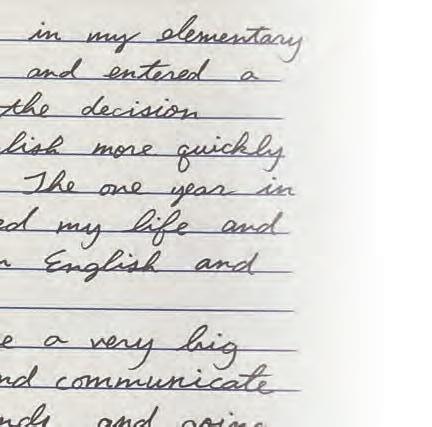 in my elementary
and entered a
the decision
lish more quickly
The one year in
ed my life and
n English and
e a very big
nd communicate
nds and going